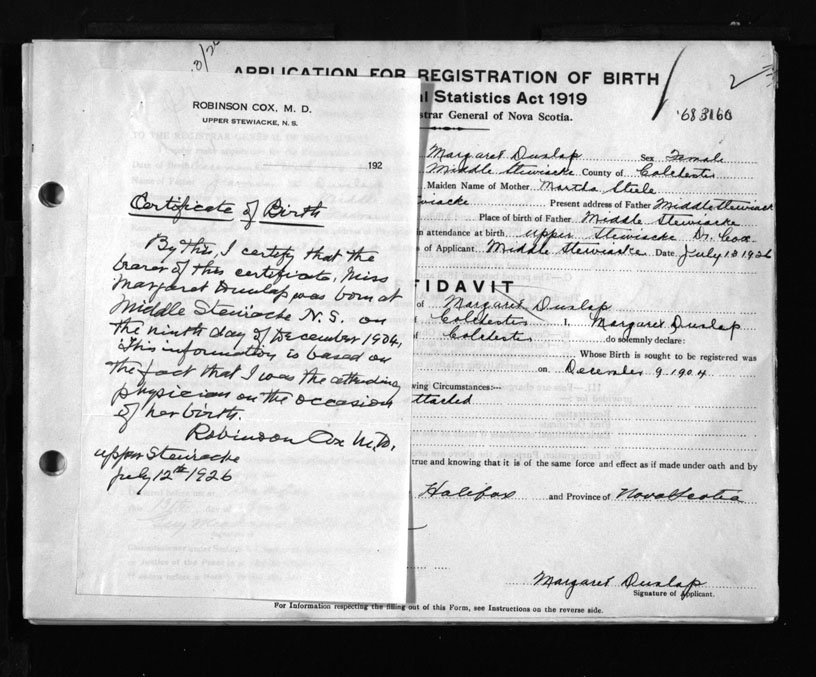 APPLICATION FOR REGISTRATION OF BIRTH
Statistics Act 1919
General of Nova Scotia.
2
683160
ROBINSON COX, M. D.
UPPER STEWIACKE, N. S.
192
Certificate of Birth
By this, I certify that the
bearer of this certificate, Miss
Margaret Dunlap was born at
Middle Stewiacke N.S. on
the ninth day of December 1904.
This information is based on
the fact that I was the attending
physician on the occasion
of her birth.
Robinson Cox M.D.
Upper Stewiacke
July 12th 1926
Margaret Dunlap Sex Female
Middle Stewiacke County of Colchester
Maiden Name of Mother Martha Steele
Present address of Father Middle Stewiack
Place of birth of Father Middle Stewiacke
in attendance at birth. Upper Stewiacke Dr. Cox
of Applicant. Middle Stewiacke Date July 13 1926
FIDAVIT
of Margaret Dunlap
Colchester I, Margaret Dunlap
Colchester do solemnly declare:
Whose Birth is sought to be registered was
on December 9 1904
wing Circumstances:—
attached
true and knowing that it is of the same force and effect as if made under oath and by
Halifax and Province of Nova Scotia
Margaret Dunlap
Signature of Applicant.
For Information respecting the filling out of this Form, see Instructions on the reverse side.